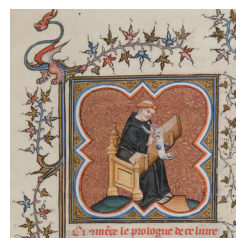 Ci cõmẽce le prologue de ce liure